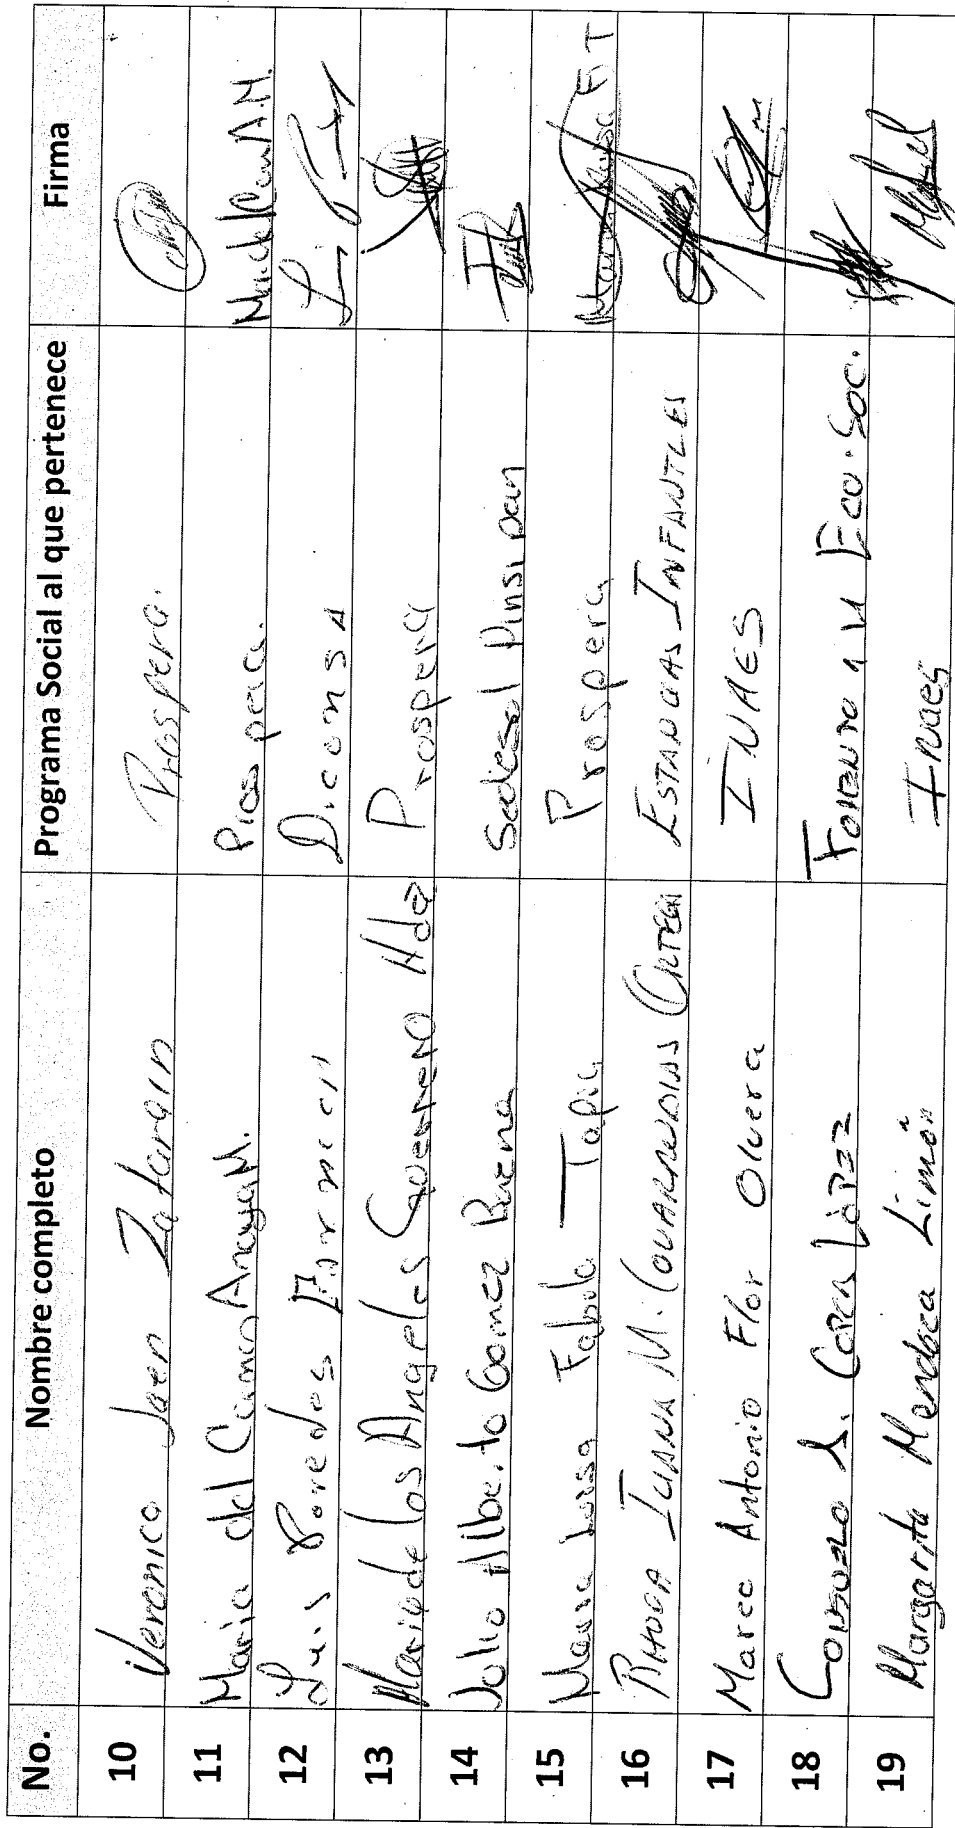 No. Nombre completo Programa Social al que pertenece Firma
10 Veronica Jaen Zatarain Prospera.
11 Maria del Carmen Anaya M. Prospera. Ma del Carm A.M.
12 Luis Paredes Diconsa
13 Maria de los Angeles Guerrero Hdez Prospera
14 Julio Alberto Gomez Baena Sedesol Pinsipan
15 Maria Luisa Fabila Tapia Prospera
16 Rhoda Ivana M. Covarrubias Ortega ESTANCIAS INFANTLES
17 Marco Antonio Flor Olvera INAES
18 Consuelo López Eco. Soc.
19 Margarita Mendoza Limón Inaes